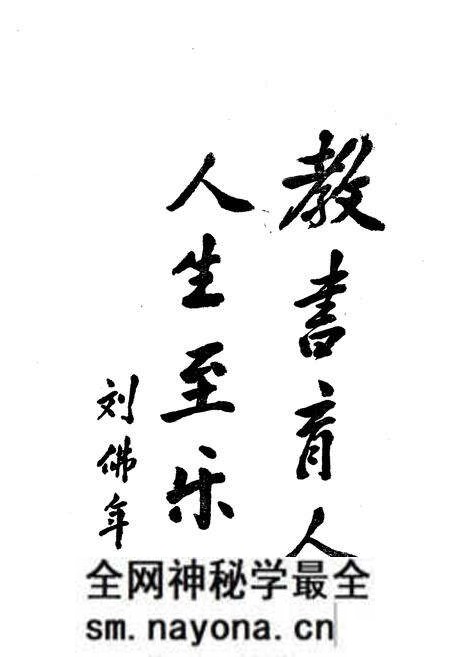 教书育人
人生至乐
刘佛年
全网神秘学最全
sm.nayona.cn